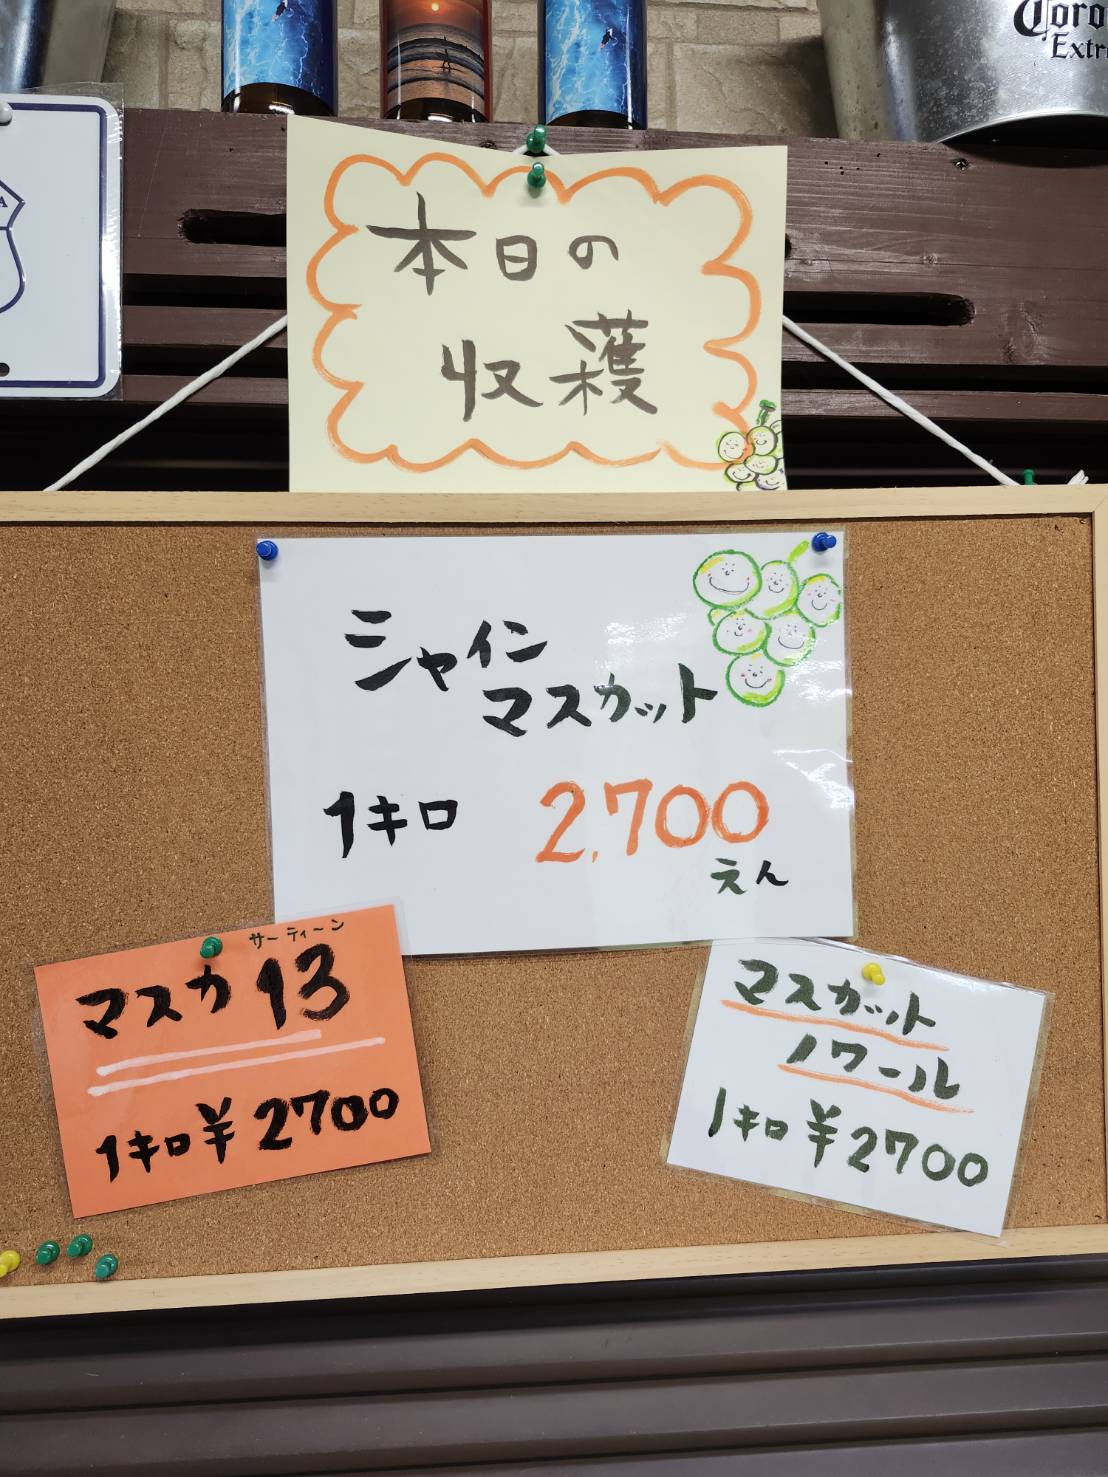 Coro
Extr
A
本日の
収穫
シャイン
マスカット
1キロ 2,700
えん
サーティーン
マスカ13
1キロ¥2700
マスカット
ノワール
1キロ¥2700